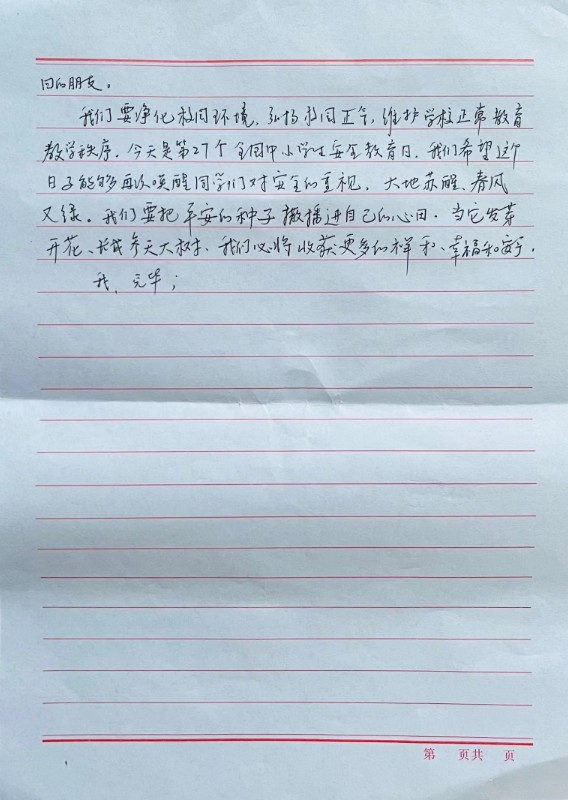 日的朋友。
我们要净化校园环境，弘扬校园正气，维护学校正常教育
教学秩序。今天是第27个全国中小学生安全教育日，我们希望这个
日子能够再次唤醒同学们对安全的重视，大地苏醒，春风
又绿。我们要把平安的种子撒播进自己的心田。当它发芽
开花、长成参天大树，我们必将收获更多的祥和、幸福和安宁。
我，完毕；
第 页共 页